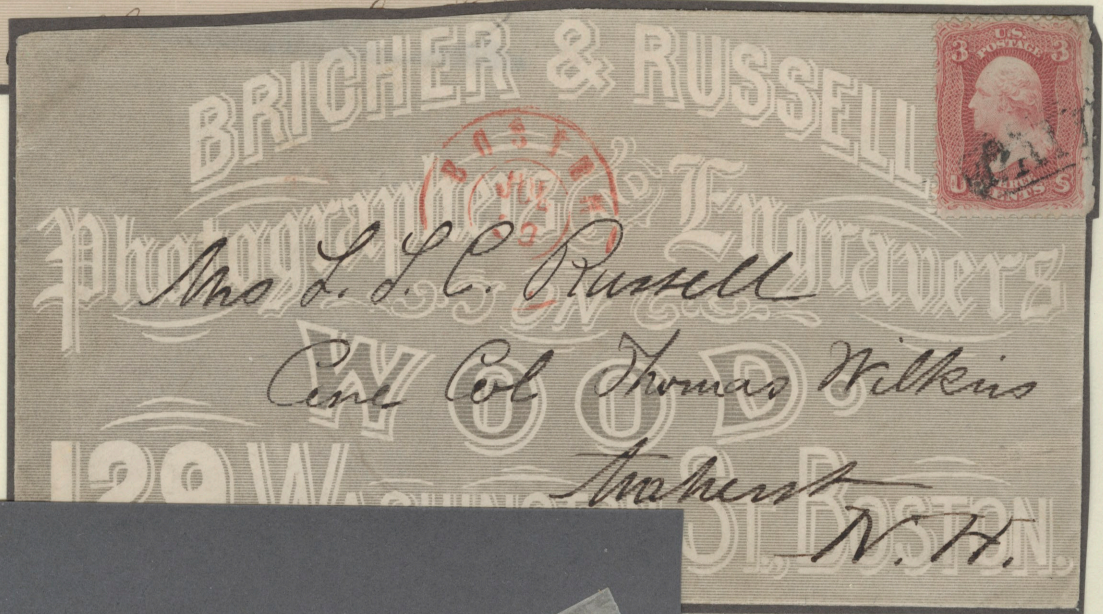 BRICHER & RUSSELL,
Photographers AND Engravers
ON
WOOD.
129 WASHINGTON ST., BOSTON.
BOSTON
JUL
U.S.
POSTAGE
3 3
U S
CENTS
PAID
Mrs L. S. C. Russell
Care Col Thomas Wilkins
Amherst
N. H.